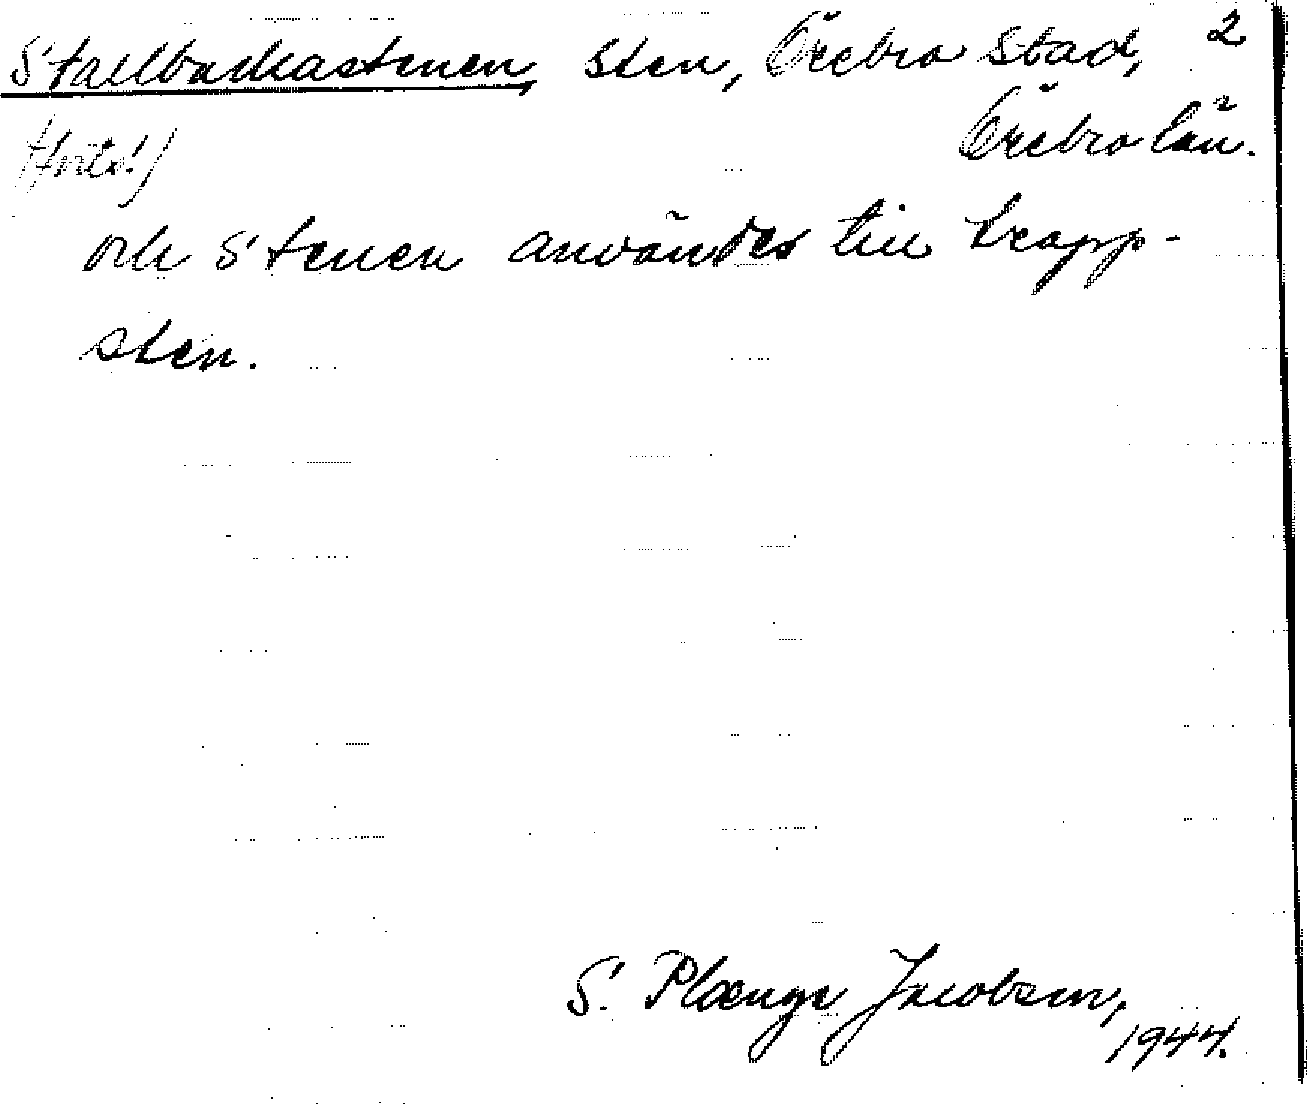 Stallbackastenen, Sten, Örebro stad, 2
(forts!) Örebro län.
och Stenen användes till trapp-
sten.
S. Plænge Jacobsen,
1944.